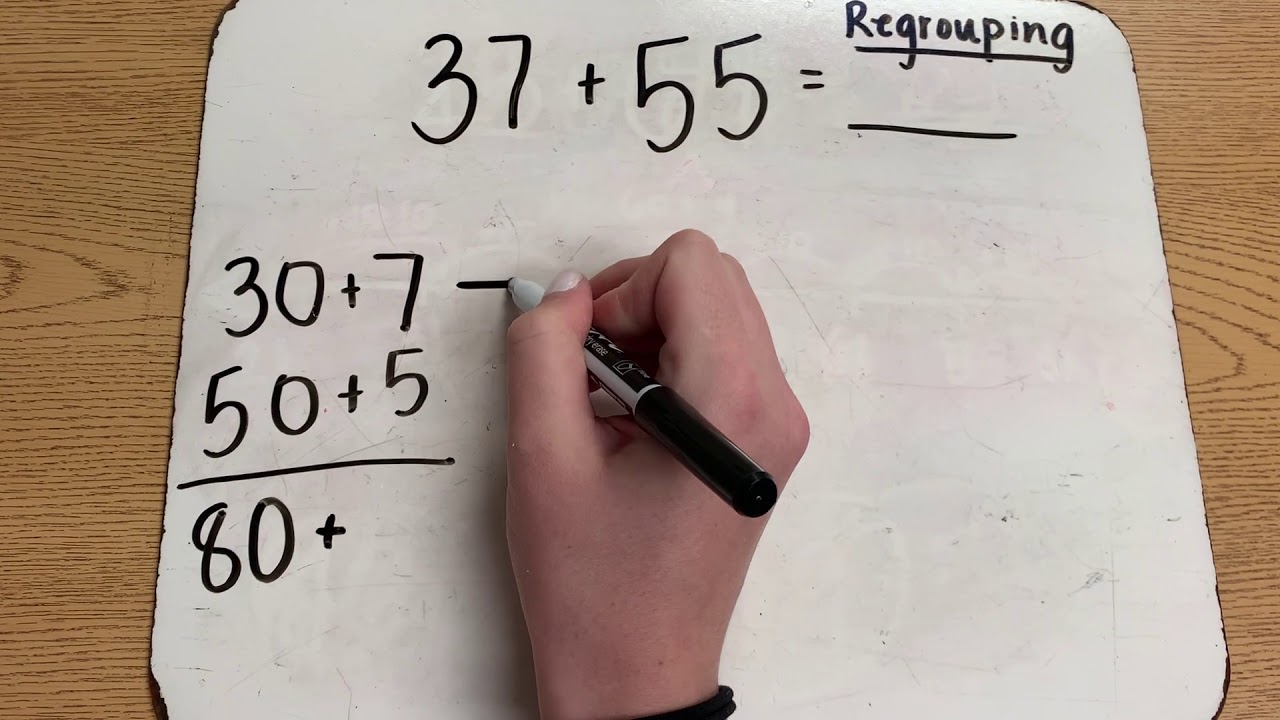 Regrouping
37 + 55 = ___
30 + 7 —
50 + 5
80 +